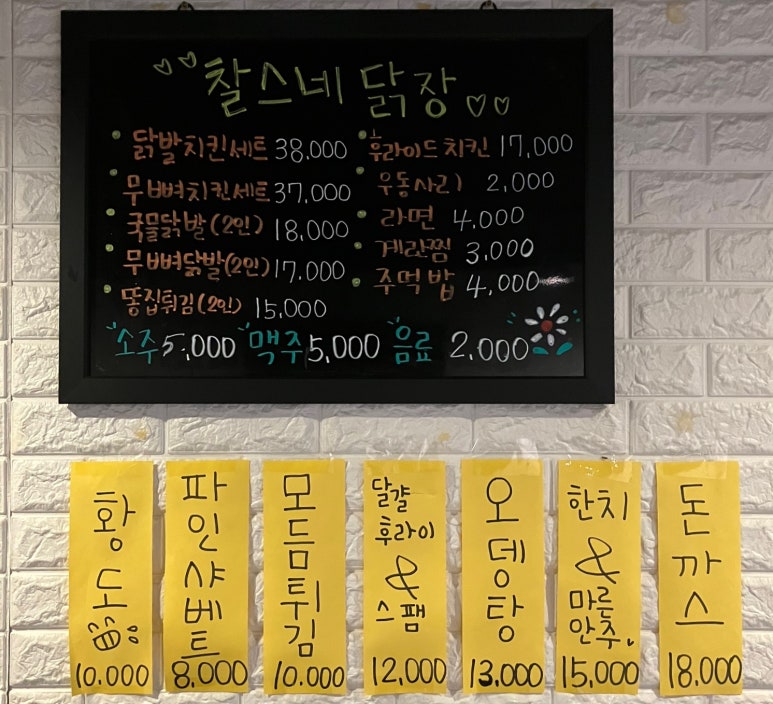 찰스네 닭장
닭발치킨세트 38,000
무뼈치킨세트 37,000
국물닭발(2인) 18,000
무뼈닭발(2인) 17,000
똥집튀김(2인) 15,000
후라이드치킨 17,000
우동사리 2,000
라면 4,000
계란찜 3,000
주먹밥 4,000
소주 5,000 맥주 5,000 음료 2,000
황도
10.000
파인샤베트
8.000
모듬튀김
10.000
달걀
후라이
&
스팸
12,000
오뎅탕
13.000
한치
&
마른
안주
15,000
돈까스
18,000